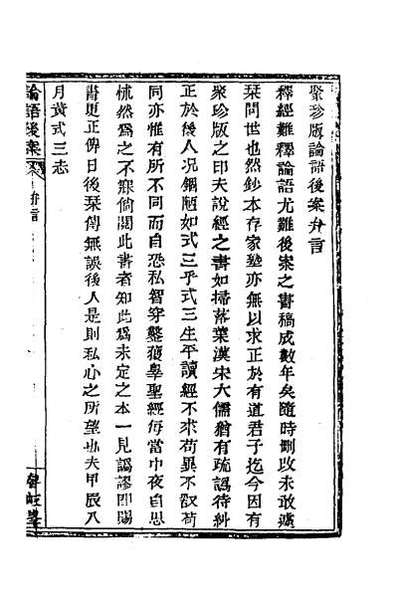 聚珍版論語後案弁言
釋經難釋論語尤難後案之書稿成數年矣隨時刪改未敢遽
栞問世也然鈔本存家塾亦無以求正於有道君子迄今因有
聚珍版之印夫說經之書如掃落葉漢宋大儒猶有疏譌待糾
正於後人况錮陋如式三乎式三生平讀經不求苟異不敢苟
同亦惟有所不同而自恐私智穿鑿獲辠聖經每當中夜自思
怵然爲之不寐倘閱此書者知此爲未定之本一見譌謬即賜
書更正俾日後栞傳無誤後人是則私心之所望也夫甲辰八
月黄式三志
論語後案
弁言